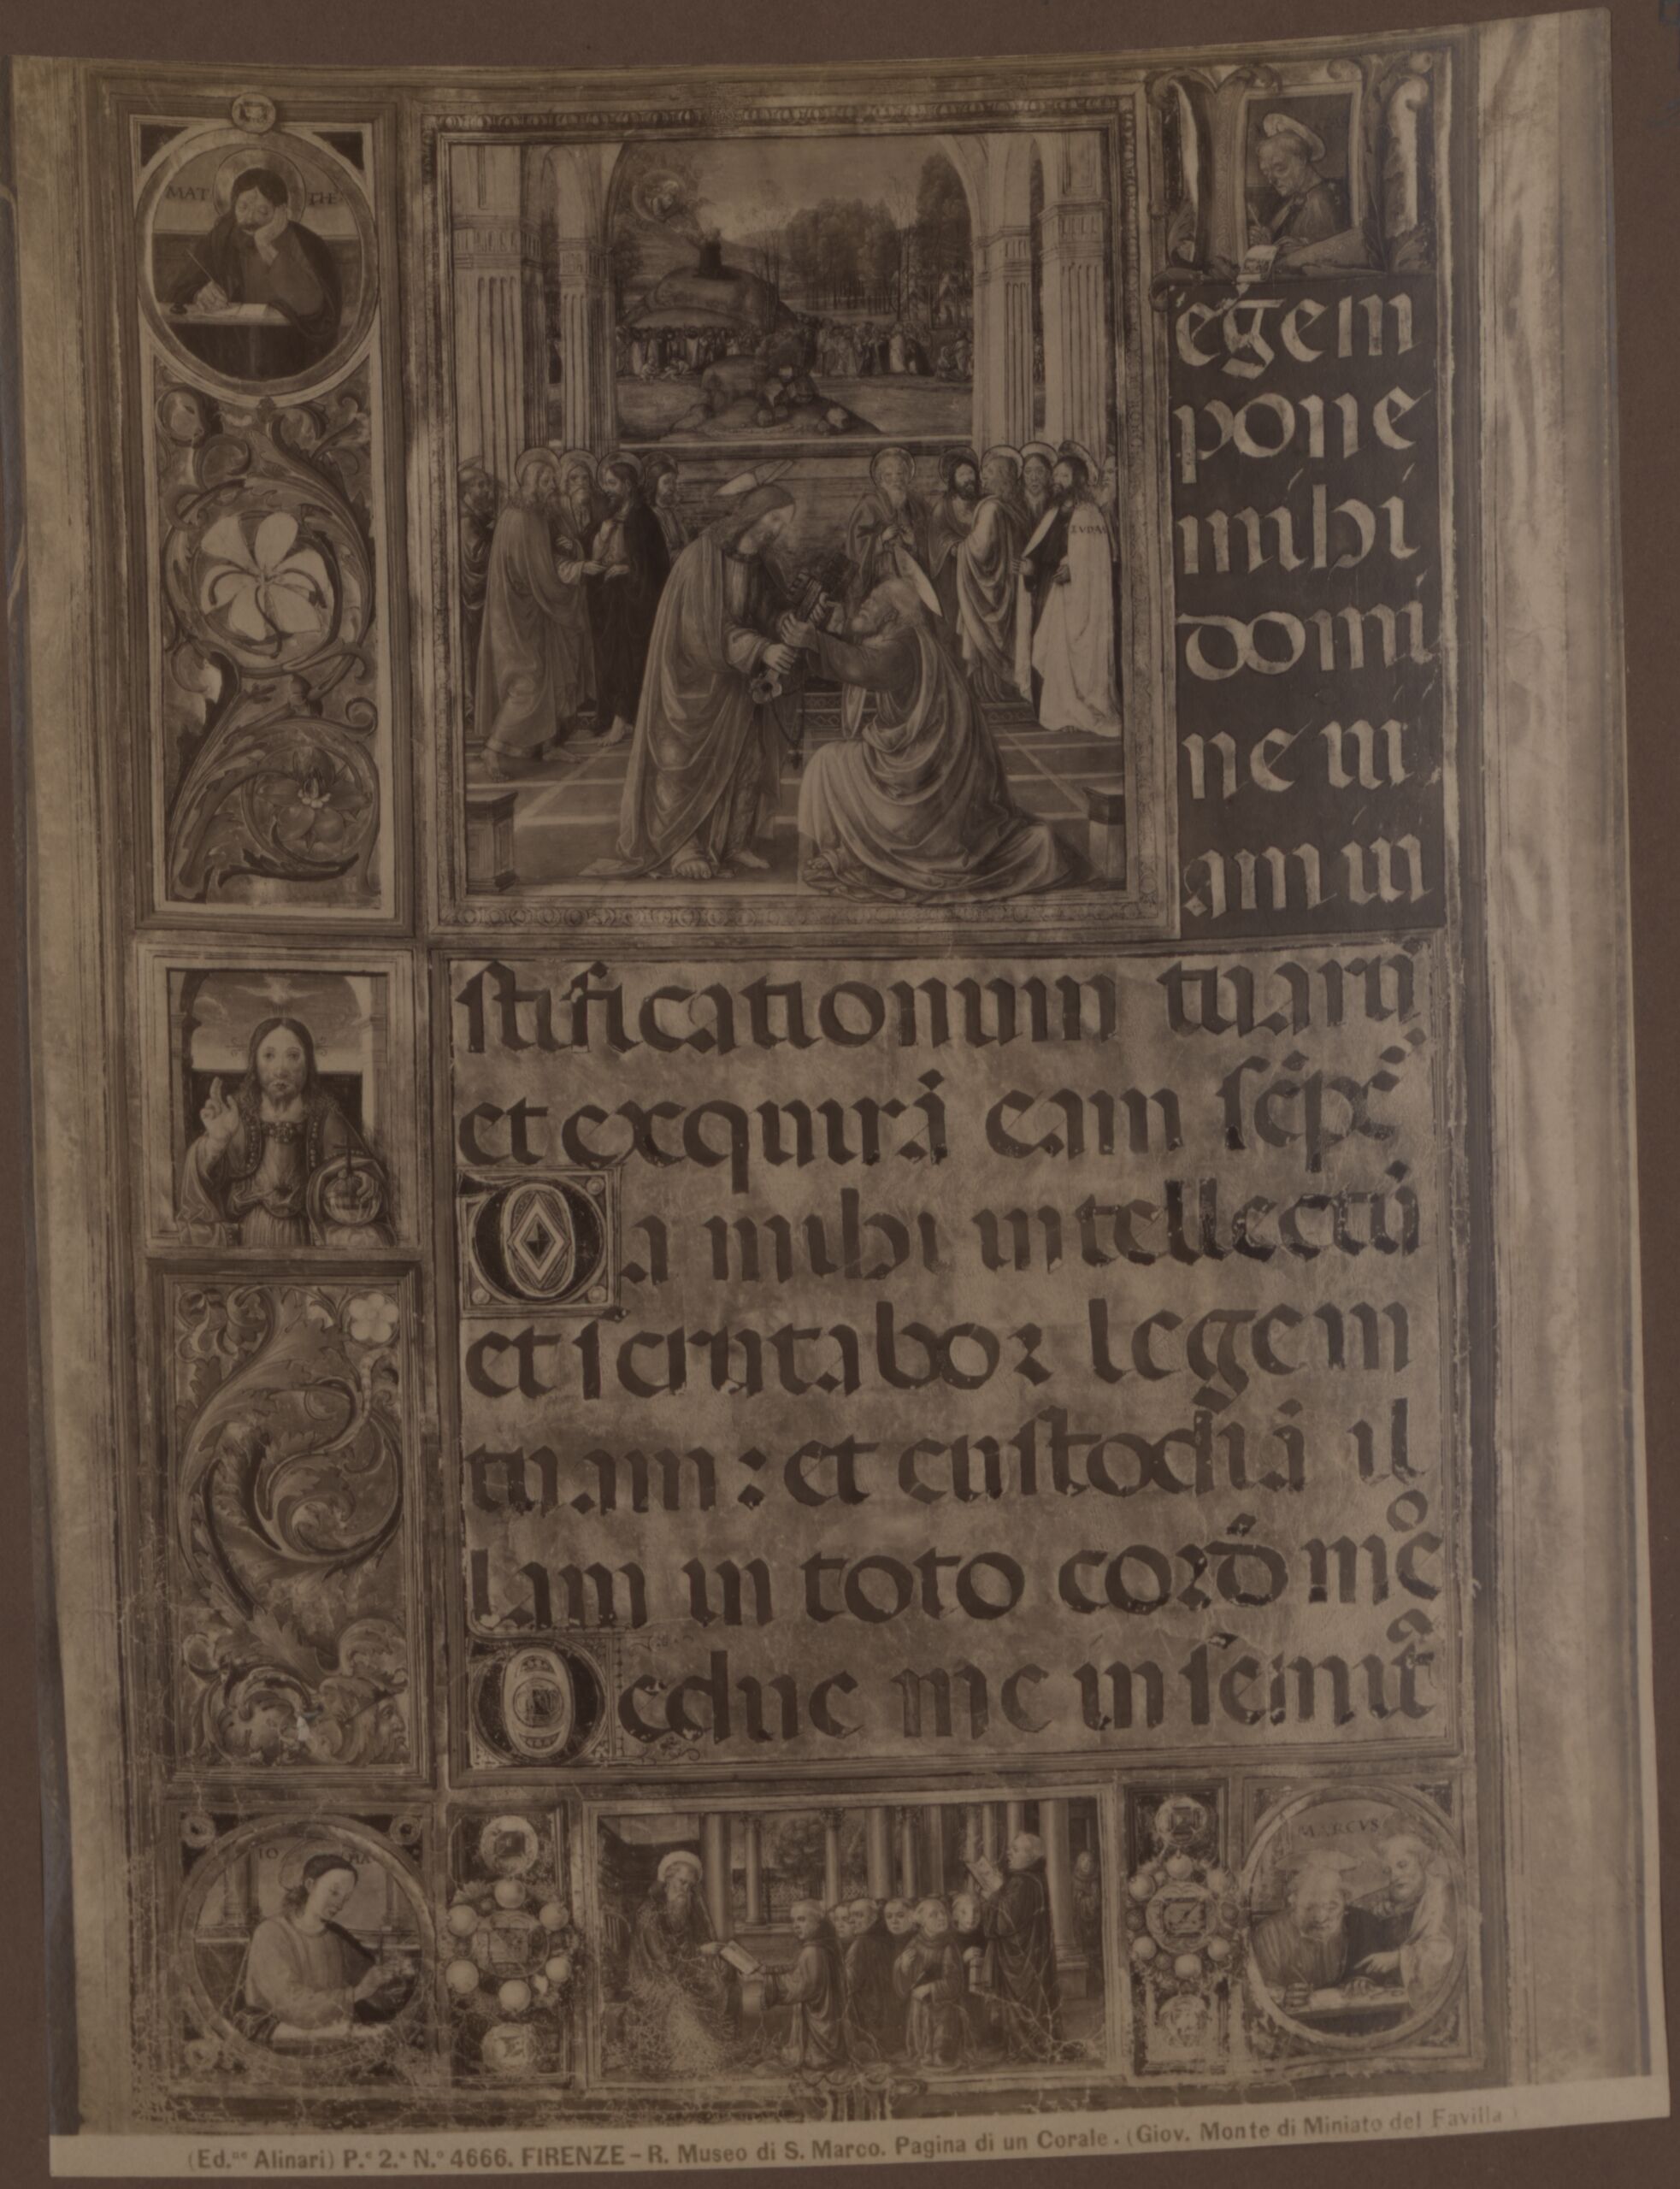 MAT THE
L
egem
pone
mihi
domi
ne m
am iu
stificationum tuarū
et exquirā eam sēpẽ
Da mihi intellectū
et scrutabor legem
tuam : et custodiā il
lam in toto cord̄ meo
Deduc me in semitā
IO HA
MARCVS
(Ed.ⁿᵉ Alinari) P.ᵉ 2.ᵃ N.º 4666. FIRENZE – R. Museo di S. Marco. Pagina di un Corale. (Giov. Monte di Miniato del Favilla)